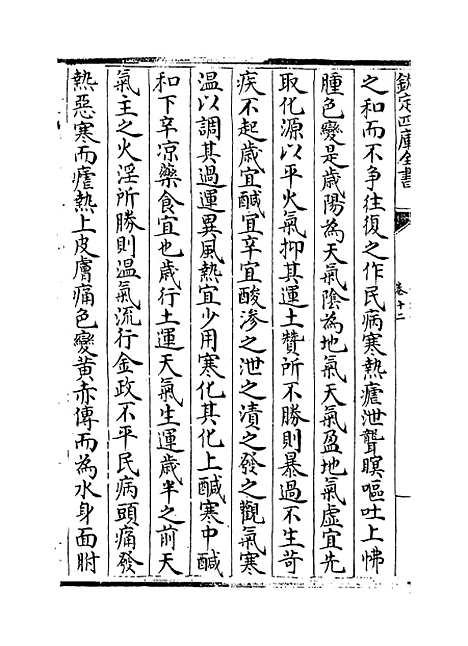 欽定四庫全書
卷十二
之和而不争往復之作民病寒熱瘧泄聾瞑嘔吐上怫
腫色變是歲陽為天氣陰為地氣天氣盈地氣虛宜先
取化源以平火氣抑其運土贊所不勝則暴過不生苛
疾不起歲宜鹹宜辛宜酸滲之泄之漬之發之觀氣寒
温以調其過運異風熱宜少用寒化其化上鹹寒中鹹
和下辛凉藥食宜也歲行土運天氣生運歲半之前天
氣主之火淫所勝則温氣流行金政不平民病頭痛發
熱惡寒而瘧熱上皮膚痛色變黄赤傳而為水身面胕